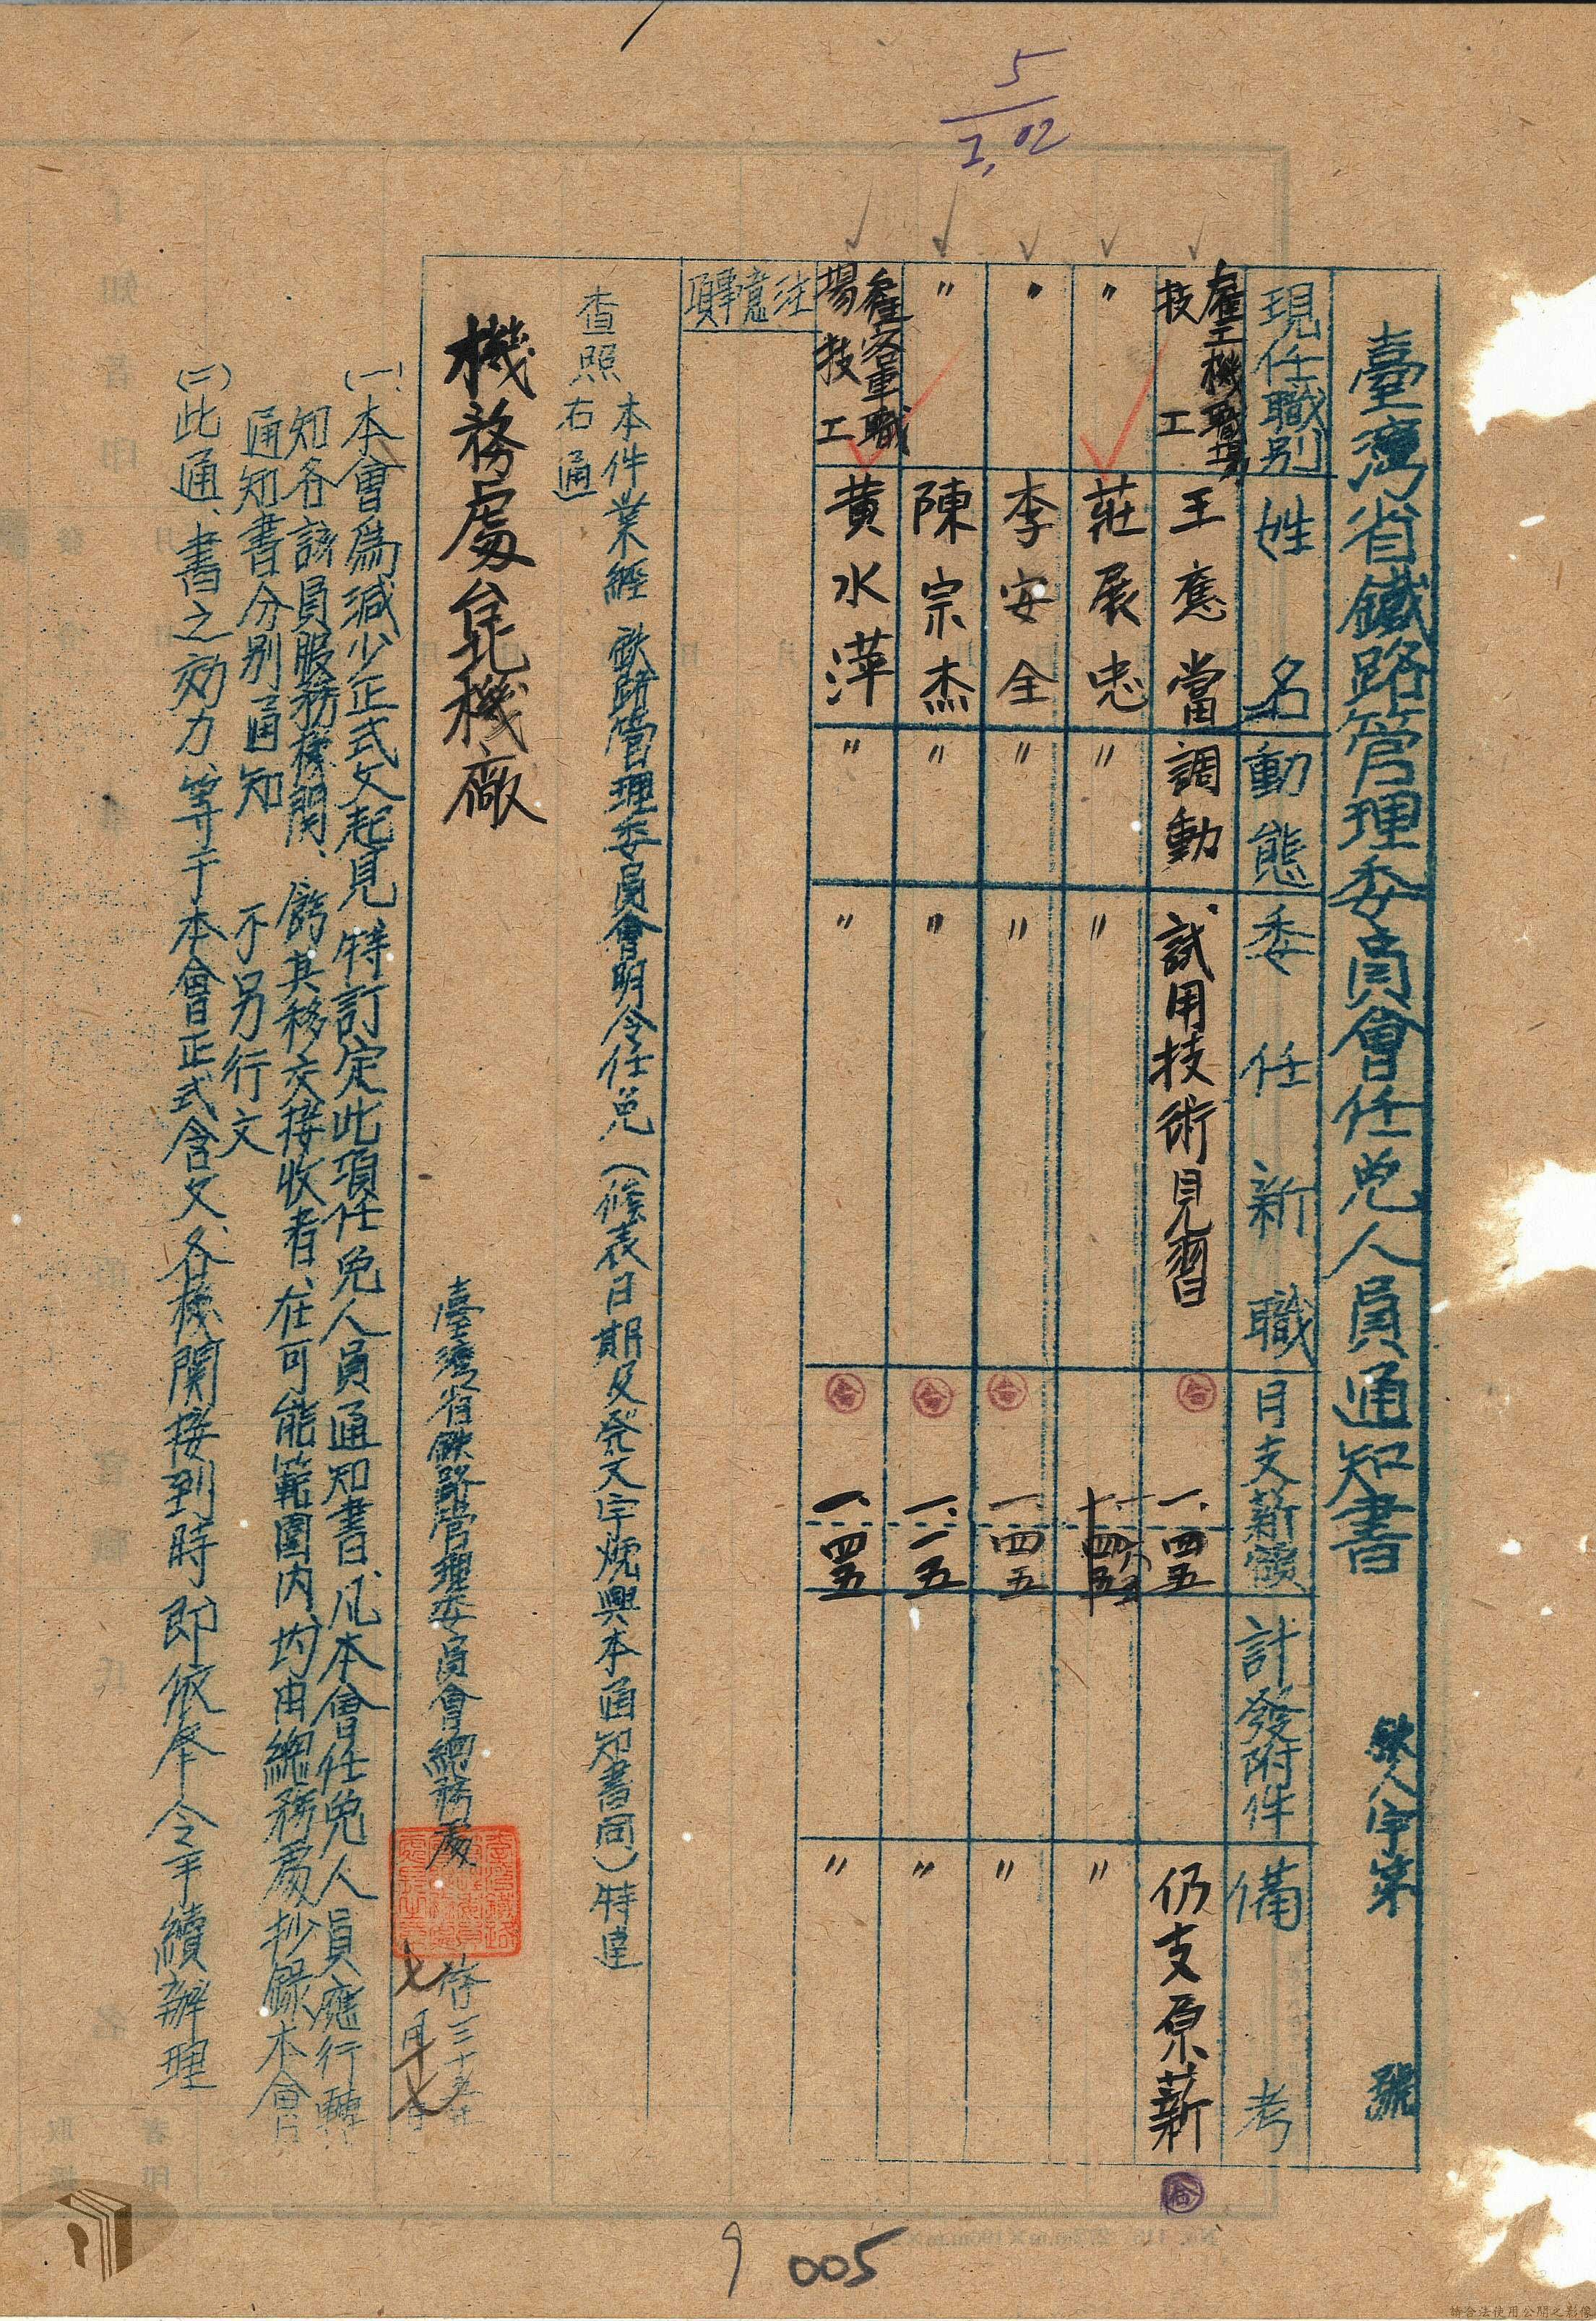 5
I,02
臺灣省鐵路管理委員會任免人員通知書 鉄人字第 號
現任職別 姓名 動態 委任新職 月支薪額 計發附件 備考
雇工機職場技工 王應當 調動 試用技術見習 一、四五 仍支原薪
〃 莊展忠 〃 〃 〃
〃 李安全 〃 〃 一、四五 〃
〃 陳宗杰 〃 〃 一、一五 〃
雇客車職場技工 黃水萍 〃 〃 一、四五 〃
注意事項
本件業經 鉄路管理委員會明令任免（候表日期及發文字號與本通知書同）特達
查照 右通
機務處台北機廠
臺灣省鉄路管理委員會總務處 啓 三十五年
七月十七日
(一)本會為減少正式文起見特訂定此項任免人員通知書、凡本會任免人員應行轉
知各該員服務機関、飭其移交接收者、在可能範圍內、均由總務處抄錄本會
通知書分別通知 不另行文
(二)此通、書之効力、等于本會正式含文、各機関接到時即依奉令手續辦理
9 005
請合法使用公開之影像